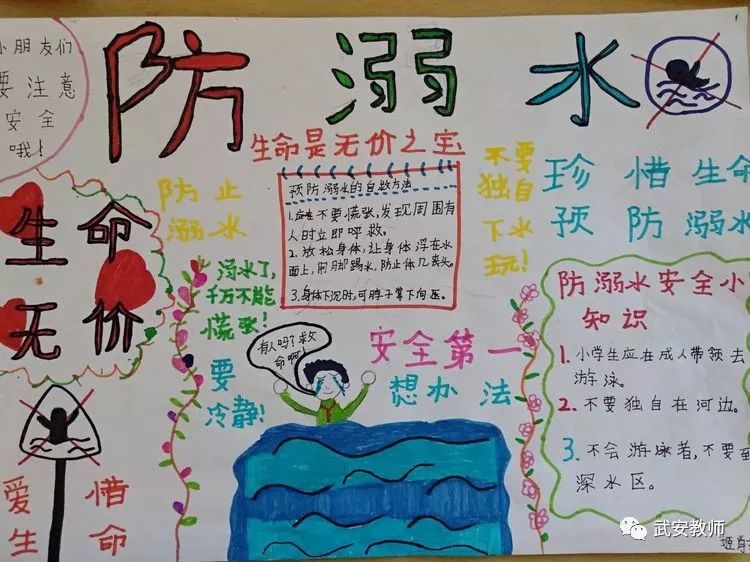 小朋友们
要注意
安全
哦!
防溺水
生命是无价之宝
生命
无价
防止
溺水
预防溺水的自救方法
1.不要慌张,发现周围有
人时立即呼救。
2.放松身体,让身体浮在水
面上,用脚踢水,防止体
3.身体下沉时,可
掌下向压。
不要
独自
下水
玩!
珍惜生命
预防溺水
溺水了,
千万不能
慌张!
要
冷静!
有人吗?救
命啊!
安全第一
想办法
防溺水安全小
知识
1.小学生应在成人带领去
游泳。
2.不要独自在河边。
3.不会游泳者,不要到
深水区。
爱惜
生命
武安教师